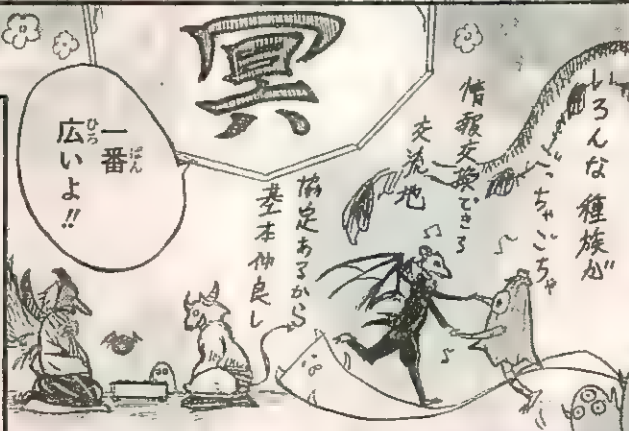 いろんな種族が
ごっちゃごちゃ
情報交換できる
交流地
冥
協定あるから
基本仲良し
一番
広いよ!!